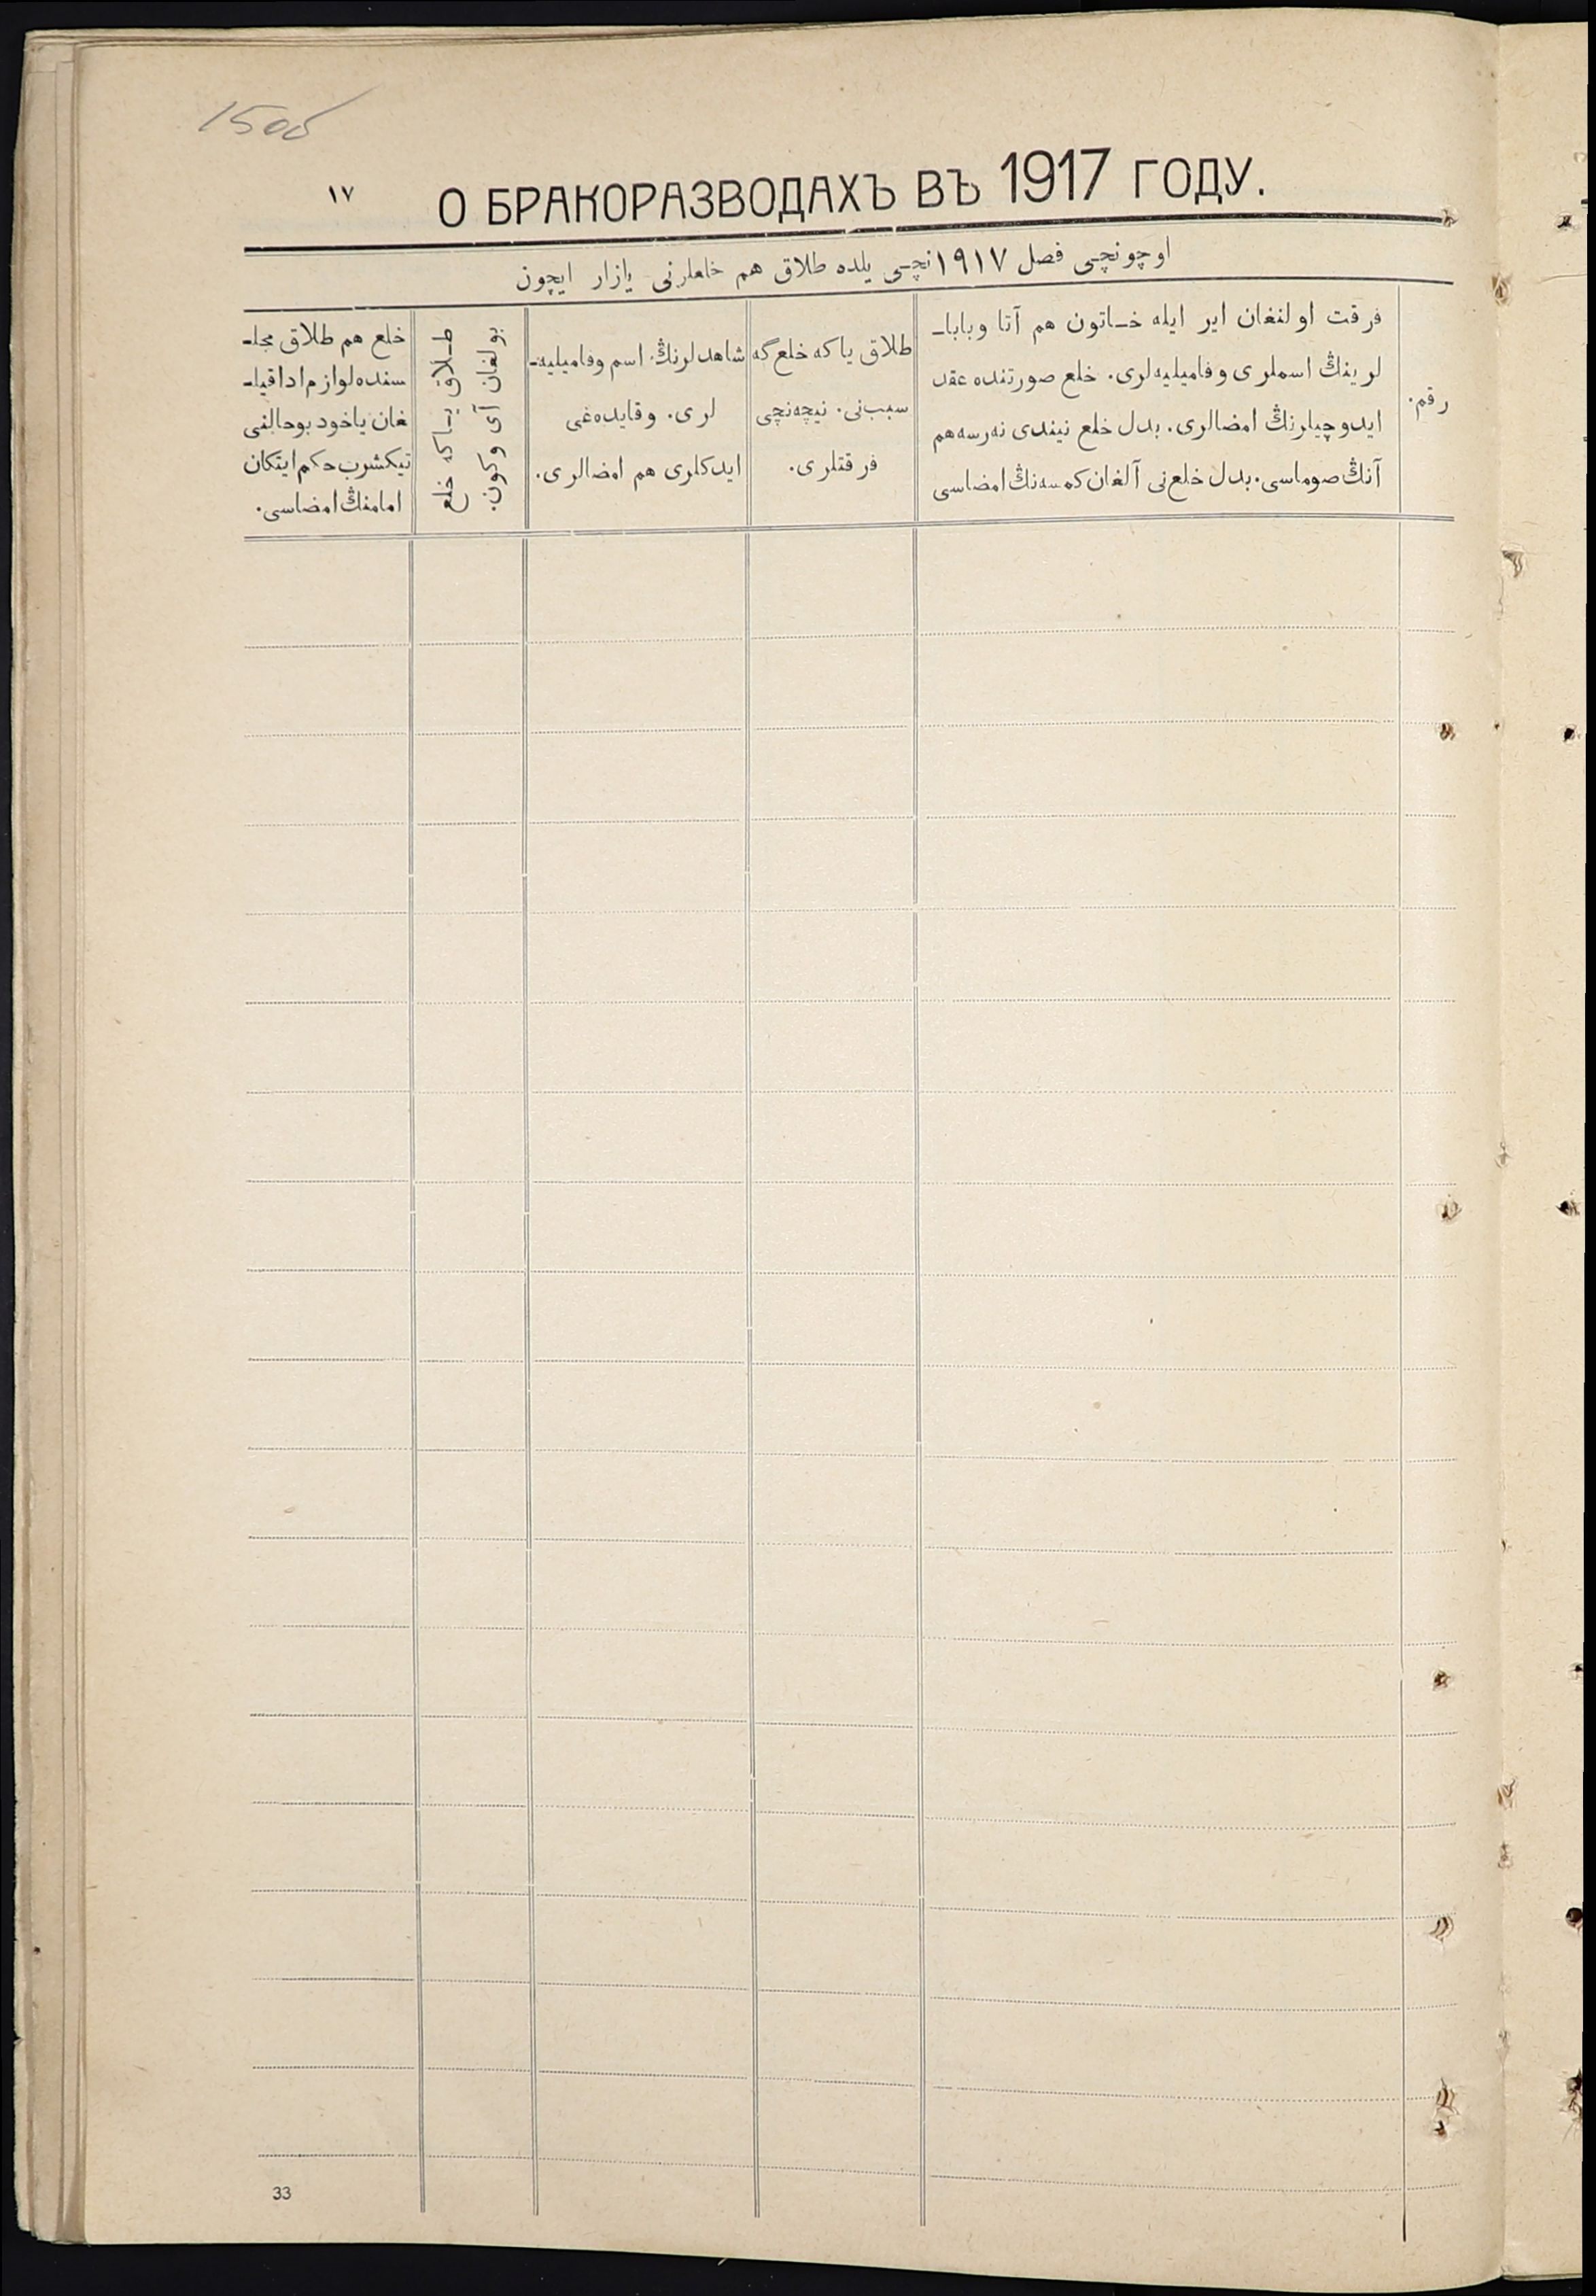 15об
١٧
О БРАКОРАЗВОДАХЪ ВЪ 1917 ГОДУ.
اوچونچی فصل ١٩١٧نچی یلده طلاق هم خلعلرنی یازار ایچون
رقم.
فرقت اولنغان ایر ایله خاتون هم آتا وبابا-
لرینڭ اسملری وفامیلیه‌لری. خلع صورتنده عقد
ایدوچیلرنڭ امضالری. بدل خلع نیندی نه‌رسه هم
آنڭ صوماسی. بدل خلع‌نی آلغان کمسه‌نڭ امضاسی
طلاق یا که خلع گه
سبب‌نی. نیچه‌نچی
فرقتلری.
شاهدلرنڭ اسم وفامیلیه-
لری. وقایده‌غی
ایدکلری هم امضالری.
طلاق یا که خلع
بولغان آی وکون.
خلع هم طلاق مجلـ
سنده لوازم ادا قیلـ
غان یاخود بوحالنی
تیکشرب حکم ایتکان
امامنڭ امضاسی.
33